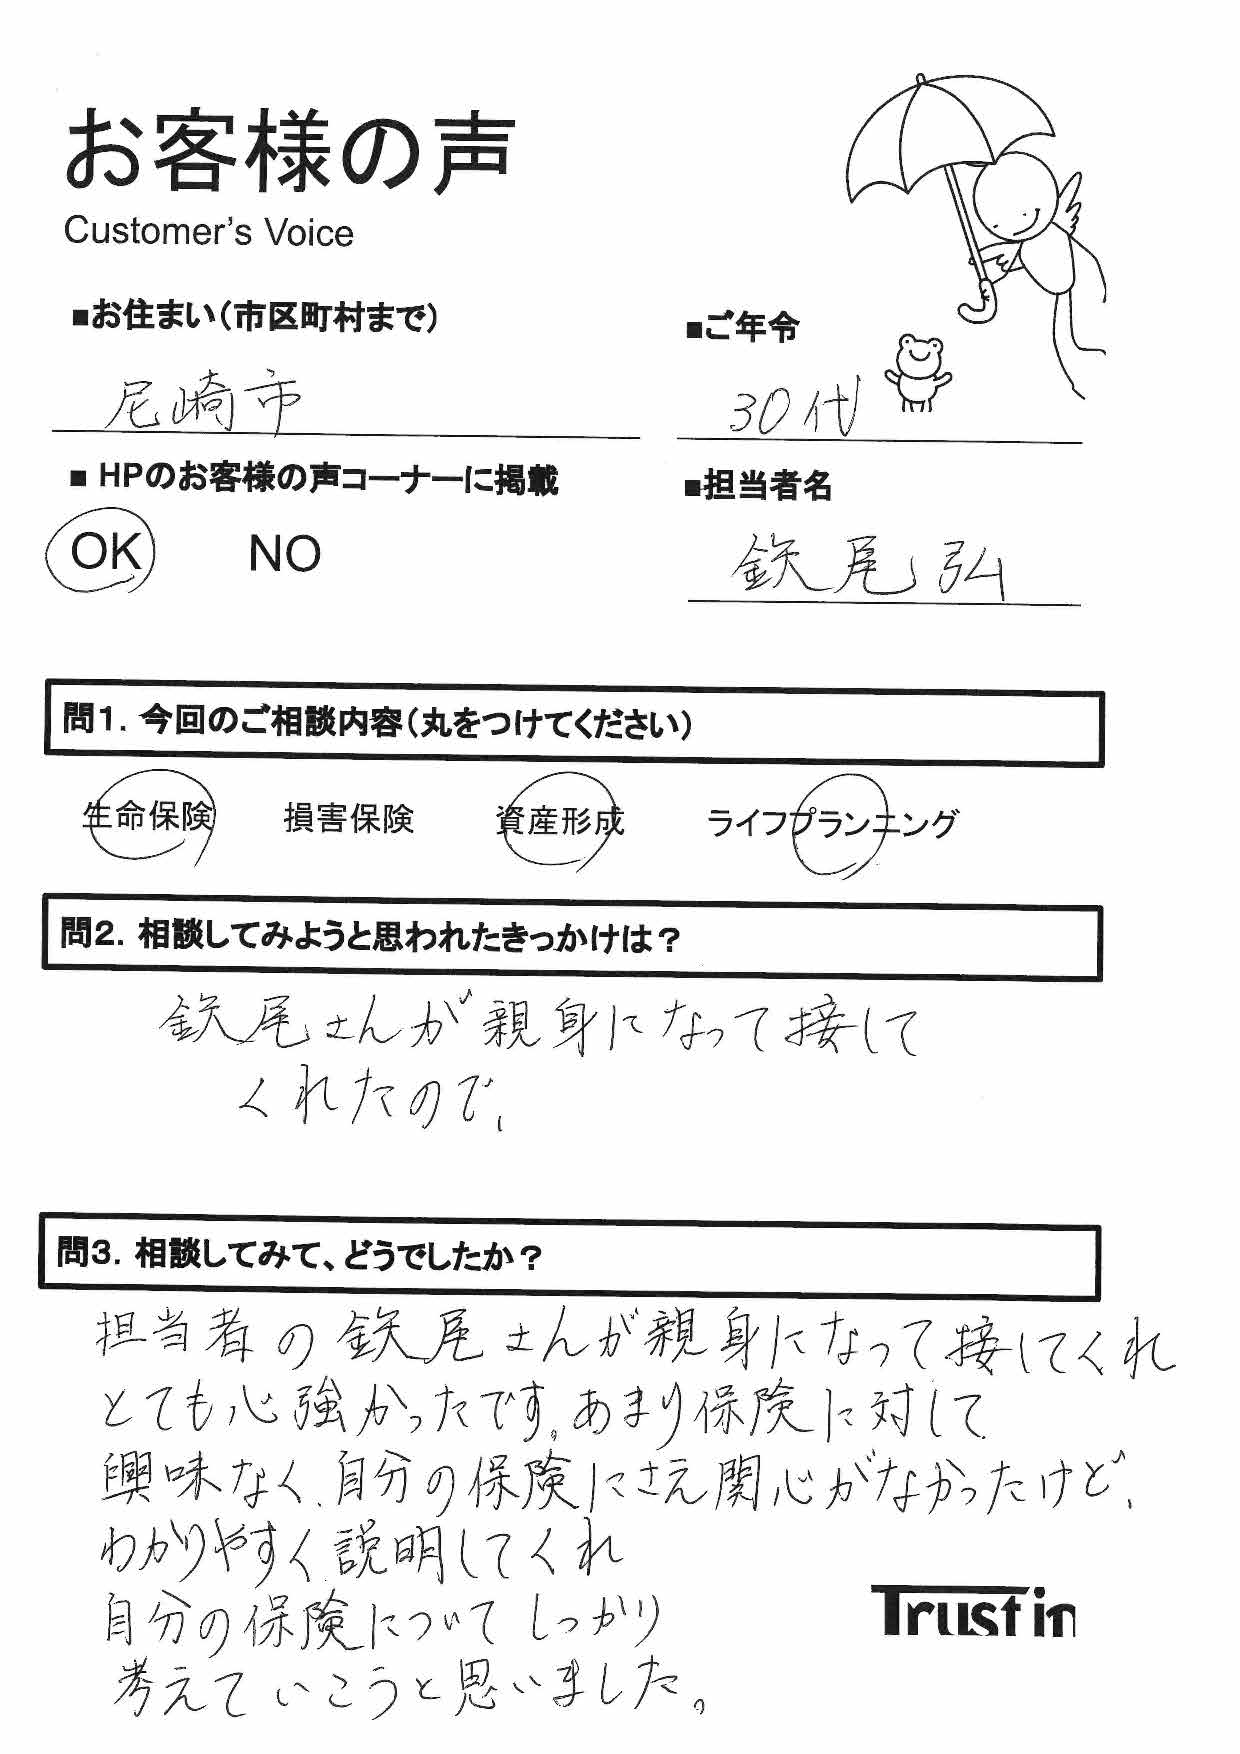 お客様の声
Customer's Voice
■お住まい（市区町村まで）
■ご年令
尼崎市
30代
■ HPのお客様の声コーナーに掲載
■担当者名
OK NO
鉃尾弘
問1. 今回のご相談内容（丸をつけてください）
生命保険 損害保険 資産形成 ライフプランニング
問2. 相談してみようと思われたきっかけは？
鉃尾さんが親身になって接して
くれたので、
問3. 相談してみて、どうでしたか？
担当者の鉃尾さんが親身になって接してくれ
とても心強かったです。あまり保険に対して
興味なく、自分の保険にさえ関心がなかったけど、
わかりやすく説明してくれ
自分の保険についてしっかり
考えていこうと思いました。
Trustin